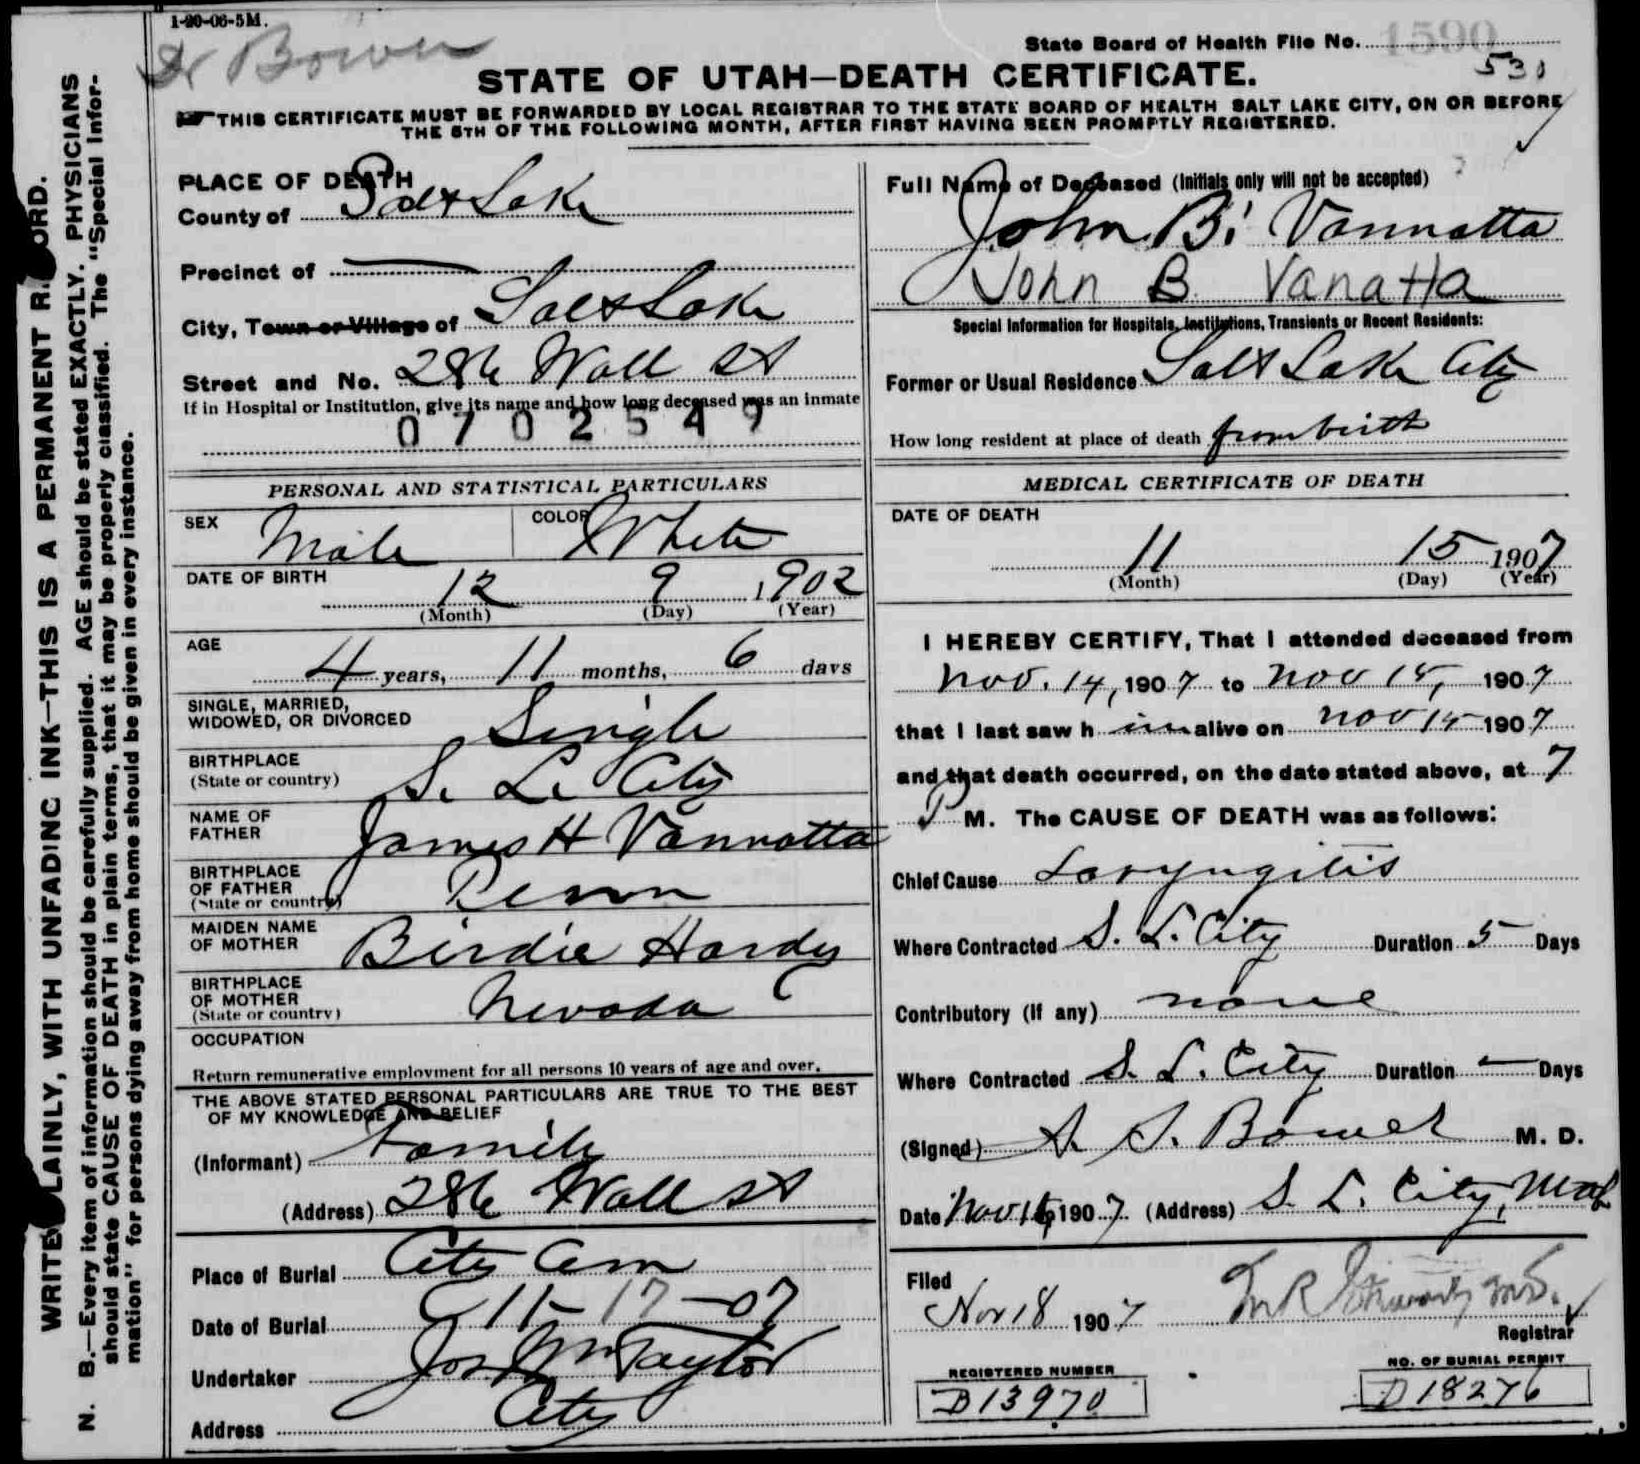 1-20-06-5M.
Dr Bower
State Board of Health File No. 1590
531
STATE OF UTAH—DEATH CERTIFICATE.
☞THIS CERTIFICATE MUST BE FORWARDED BY LOCAL REGISTRAR TO THE STATE BOARD OF HEALTH SALT LAKE CITY, ON OR BEFORE
THE 5TH OF THE FOLLOWING MONTH, AFTER FIRST HAVING BEEN PROMPTLY REGISTERED.
PLACE OF DEATH
County of Salt Lake
Precinct of —
City, Town or Village of Salt Lake
Street and No. 286 Wall St
If in Hospital or Institution, give its name and how long deceased was an inmate
0702549
PERSONAL AND STATISTICAL PARTICULARS
SEX Male COLOR White
DATE OF BIRTH 12 9 1902
(Month) (Day) (Year)
AGE
4 years, 11 months, 6 days
SINGLE, MARRIED,
WIDOWED, OR DIVORCED Single
BIRTHPLACE
(State or country) S. L. City
NAME OF
FATHER James H Vannatta
BIRTHPLACE
OF FATHER
(State or country) Penn
MAIDEN NAME
OF MOTHER Birdie Hardy
BIRTHPLACE
OF MOTHER
(State or country) Nevada
OCCUPATION
Return remunerative employment for all persons 10 years of age and over.
THE ABOVE STATED PERSONAL PARTICULARS ARE TRUE TO THE BEST
OF MY KNOWLEDGE AND BELIEF
(Informant) Family
(Address) 286 Wall St
Place of Burial City Cem
Date of Burial 11-17-07
Undertaker Jos Wm Taylor
Address City
Full Name of Deceased (Initials only will not be accepted)
John B. Vannatta
John B Vanatta
Special Information for Hospitals, Institutions, Transients or Recent Residents:
Former or Usual Residence Salt Lake City
How long resident at place of death from birth
MEDICAL CERTIFICATE OF DEATH
DATE OF DEATH
11 15 1907
(Month) (Day) (Year)
I HEREBY CERTIFY, That I attended deceased from
Nov. 14, 1907 to Nov 15, 1907
that I last saw h im alive on Nov 15 1907
and that death occurred, on the date stated above, at 7
P M. The CAUSE OF DEATH was as follows:
Chief Cause Laryngitis
Where Contracted S. L. City Duration 5 Days
Contributory (If any) none
Where Contracted S. L. City Duration — Days
(Signed) S. S. Bower M. D.
Date Nov 16, 1907 (Address) S. L. City, Utah
Filed
Nov 18 1907
Registrar
REGISTERED NUMBER
D13970
NO. OF BURIAL PERMIT
D18276
WRITE PLAINLY, WITH UNFADING INK—THIS IS A PERMANENT RECORD.
N. B.—Every item of information should be carefully supplied. AGE should be stated EXACTLY. PHYSICIANS
should state CAUSE OF DEATH in plain terms, that it may be properly classified. The "Special Infor-
mation" for persons dying away from home should be given in every instance.